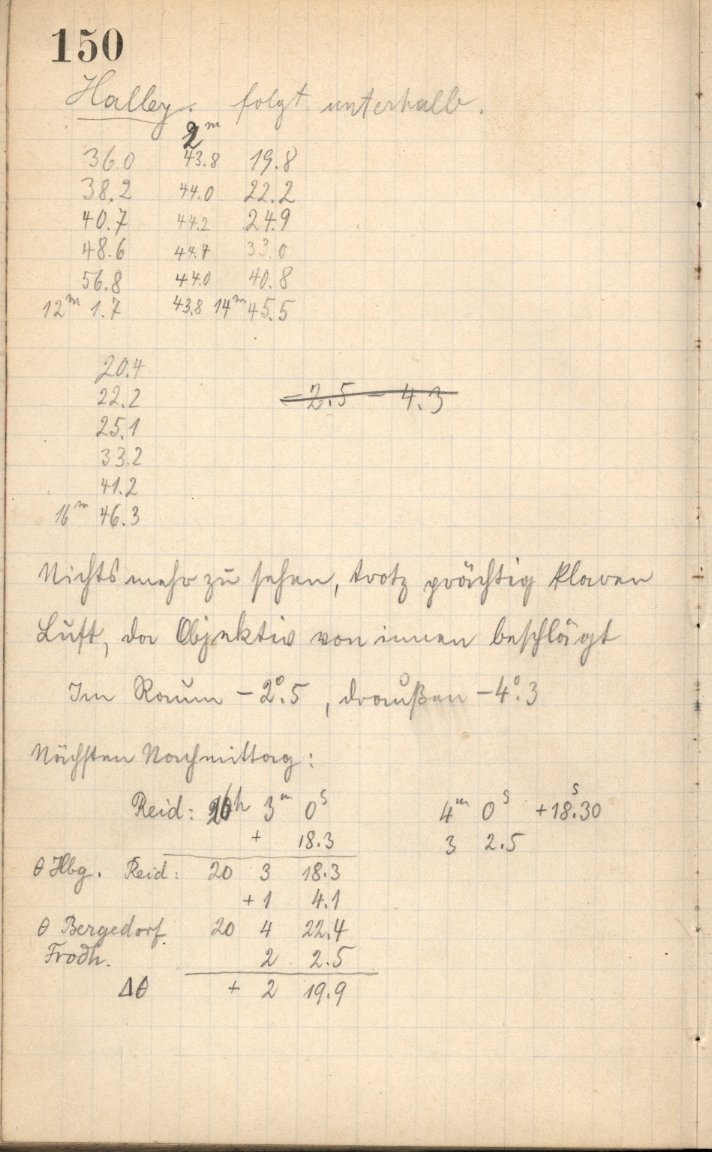 150
Halley. folgt unterhalb.
2m
36.0 43.8 19.8
38.2 44.0 22.2
40.7 44.2 24.9
48.6 44.4 33.0
56.8 44.0 40.8
12m 1.7 43.8 14m 45.5
20.4
22.2 -2.5 - 4.3
25.1
33.2
41.2
16m 46.3
Nichts mehr zu sehen, trotz prächtig klaren
Luft, da Objektiv von innen beschlägt
Im Raum -2°.5, draußen -4°.3
Nächsten Nachmittag:
Reid: h 3m 0s 4m 0s +18s.30
+ 18.3 3 2.5
θ Hbg. Reid: 20 3 18.3
+1 4.1
θ Bergedorf 20 4 22.4
Frodh. 2 2.5
Δθ + 2 19.9